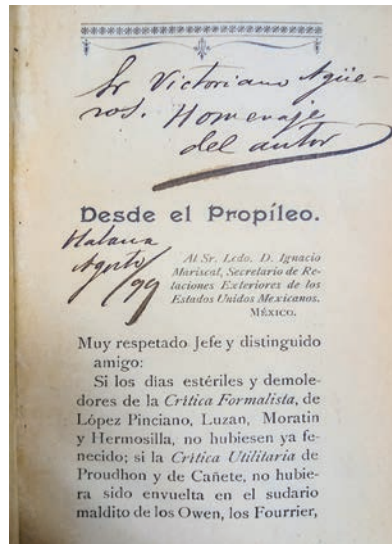 Sr Victoriano Agüe-
ros. Homenaje
del autor
Desde el Propíleo.
Habana
Agosto/99
Al Sr. Lcdo. D. Ignacio
Mariscal, Secretario de Re-
laciones Exteriores de los
Estados Unidos Mexicanos.
MÉXICO.
Muy respetado Jefe y distinguido
amigo:
Si los días estériles y demole-
dores de la Crítica Formalista, de
López Pinciano, Luzan, Moratin
y Hermosilla, no hubiesen ya fe-
necido; si la Crítica Utilitaria de
Proudhon y de Cañete, no hubie-
ra sido envuelta en el sudario
maldito de los Owen, los Fourrier,